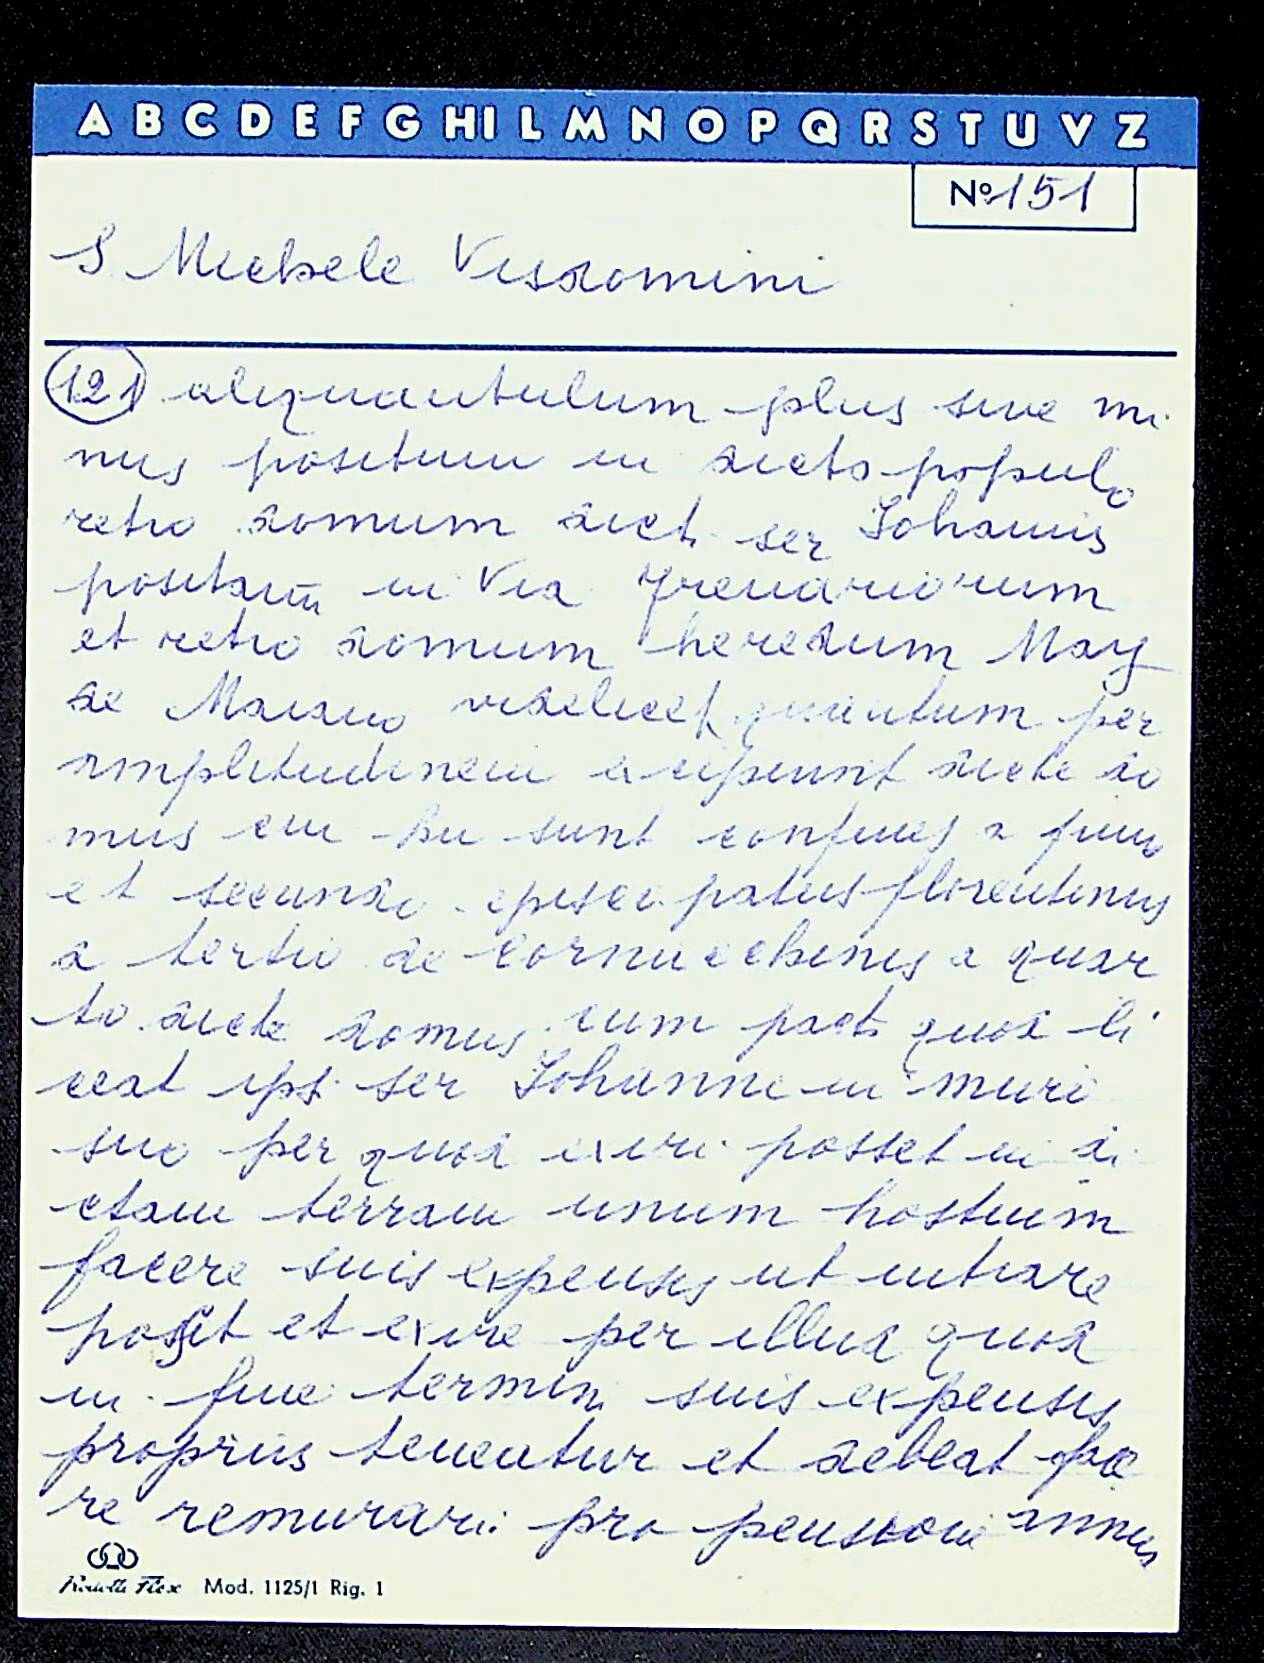 A B C D E F G H I L M N O P Q R S T U V Z
Nº 151
S. Michele Visdomini
121 aliquantulum plus sive mi
nus positum in dicto populo
retro domum dict. ser Johannis
positam in Via
et retro domum heredum May
de videlicet quantum per
amplitudinem accipiunt dicte do
mus cui hii sunt confines a primo
et secundo episcopatus florentinus
a tertio de Cornacchinis a quar
to dicte domus cum pact. quod li
ceat ips. ser Johanne in muro
suo per quod exiri posset in di
ctam terram unum hostium
facere suis expensis ut intrare
possit et exire per illud quod
in fine termin. suis expensis
propriis teneatur et debeat face
re remurari pro pensione annus
Mod. 1125/1 Rig. 1